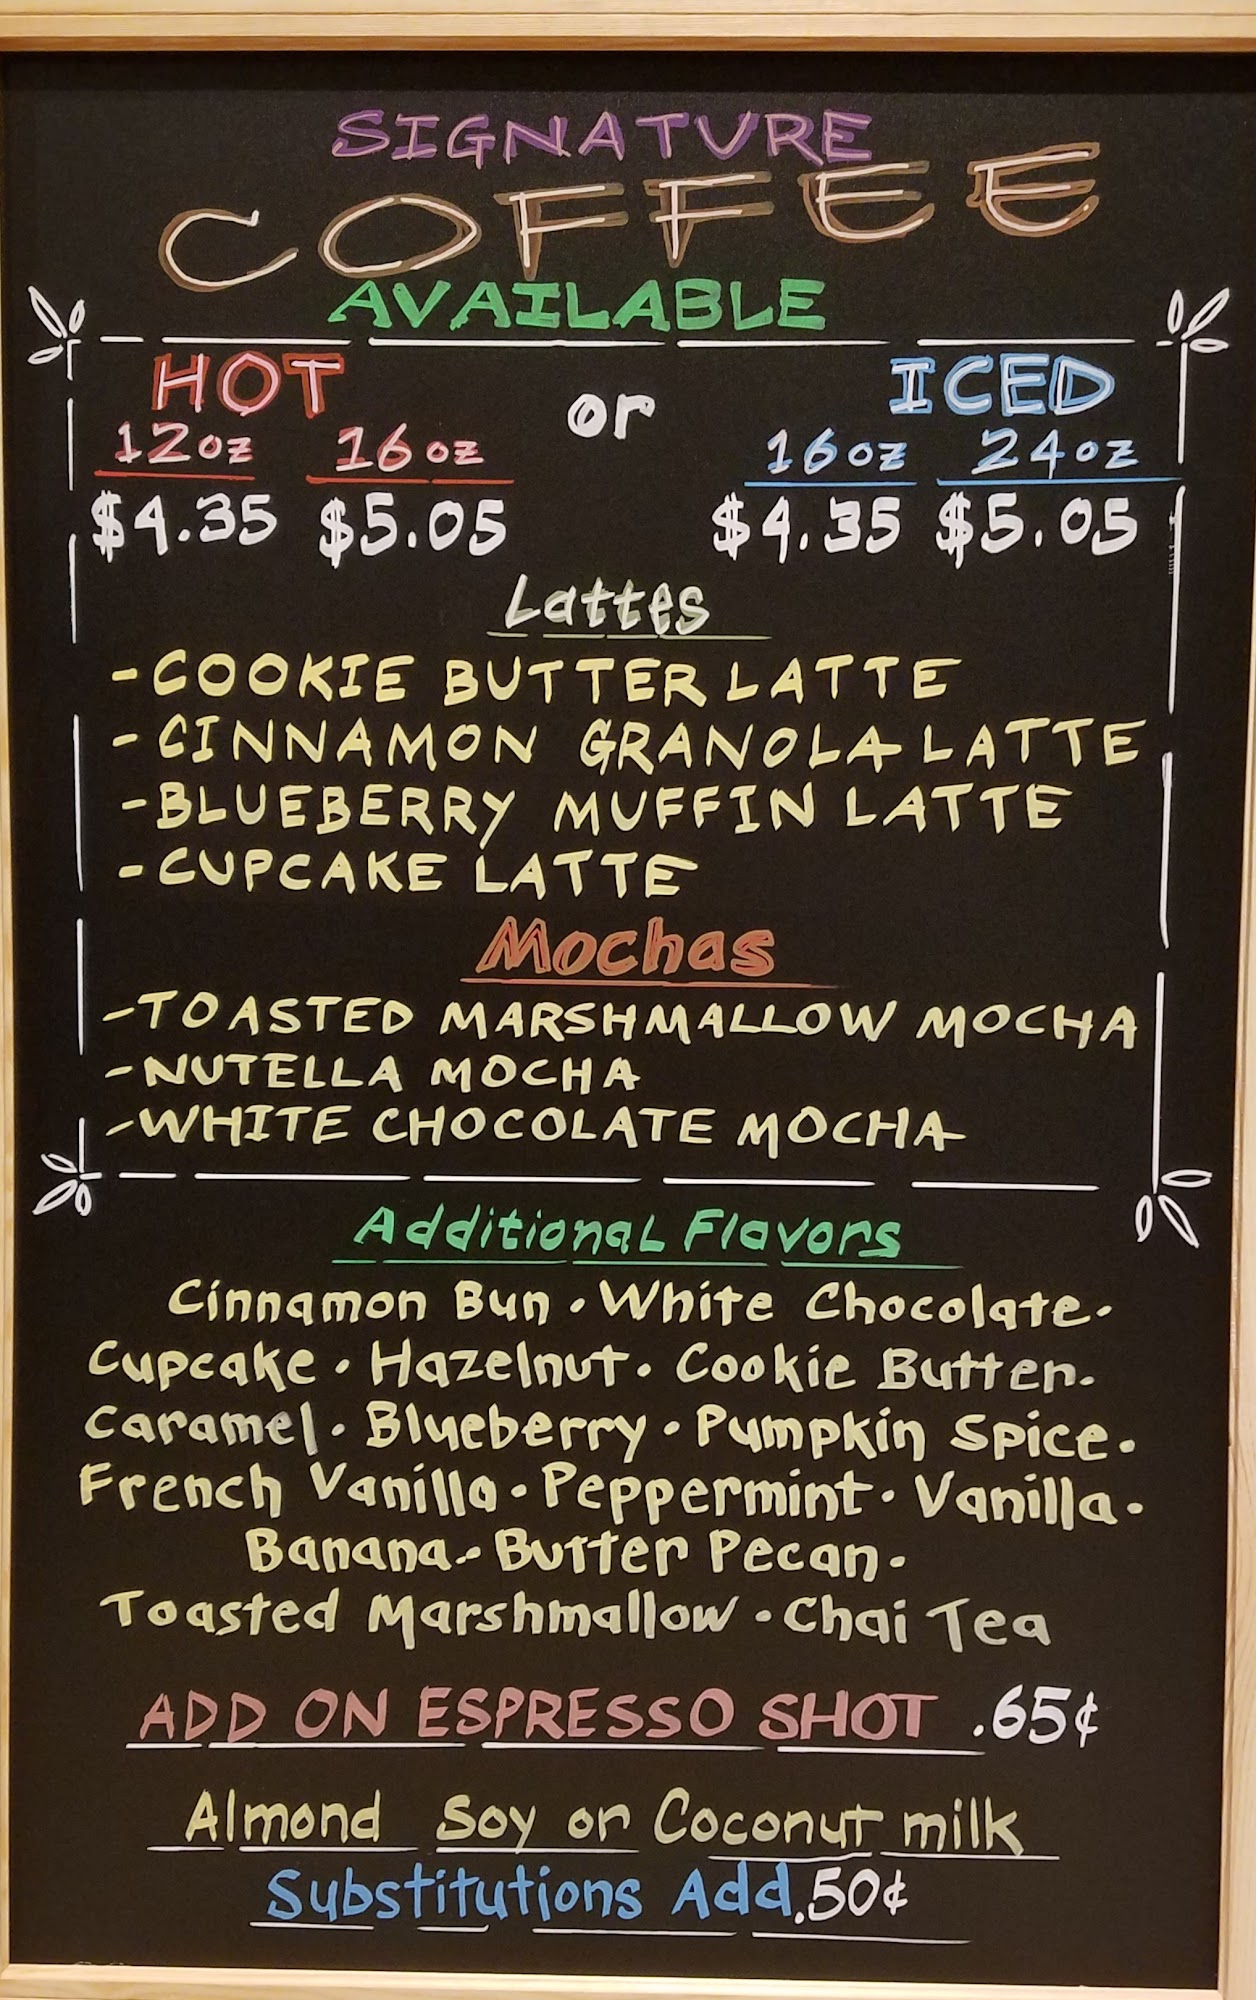 SIGNATURE
COFFEE
AVAILABLE
HOT or ICED
12oz 16oz 16oz 24oz
$4.35 $5.05 $4.35 $5.05
Lattes
-COOKIE BUTTER LATTE
-CINNAMON GRANOLA LATTE
-BLUEBERRY MUFFIN LATTE
-CUPCAKE LATTE
Mochas
-TOASTED MARSHMALLOW MOCHA
-NUTELLA MOCHA
-WHITE CHOCOLATE MOCHA
Additional Flavors
Cinnamon Bun · White Chocolate ·
Cupcake · Hazelnut · Cookie Butter ·
Caramel · Blueberry · Pumpkin Spice ·
French Vanilla · Peppermint · Vanilla ·
Banana · Butter Pecan ·
Toasted Marshmallow · Chai Tea
ADD ON ESPRESSO SHOT .65¢
Almond Soy or Coconut milk
Substitutions Add .50¢